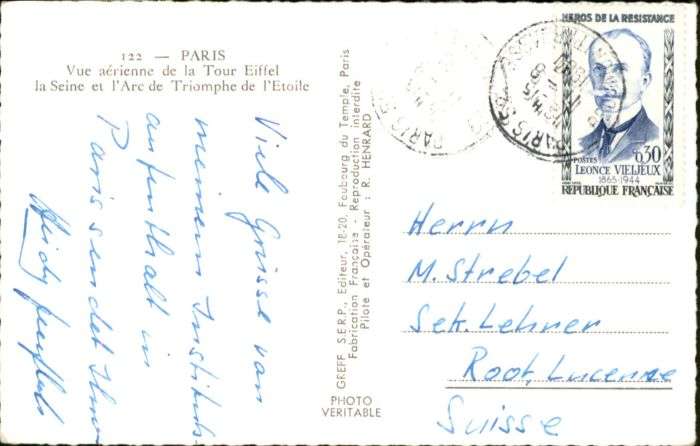 122 — PARIS
Vue aérienne de la Tour Eiffel
la Seine et l'Arc de Triomphe de l'Etoile
Viele Grüsse von
meinem Instituts-
aufenthalt in
Paris sendet Ihnen
Heidy
GREFF S.E.R.P., Editeur, 18-20, Faubourg du Temple, Paris
Fabrication Française - Reproduction interdite
Pilote et Opérateur : R. HENRARD
PHOTO
VERITABLE
HEROS DE LA RESISTANCE
0,30
POSTES
LEONCE VIELJEUX
1865-1944
REPUBLIQUE FRANÇAISE
PARIS
Herrn
M. Strebel
Sek. Lehrer
Root, Lucerne
Suisse